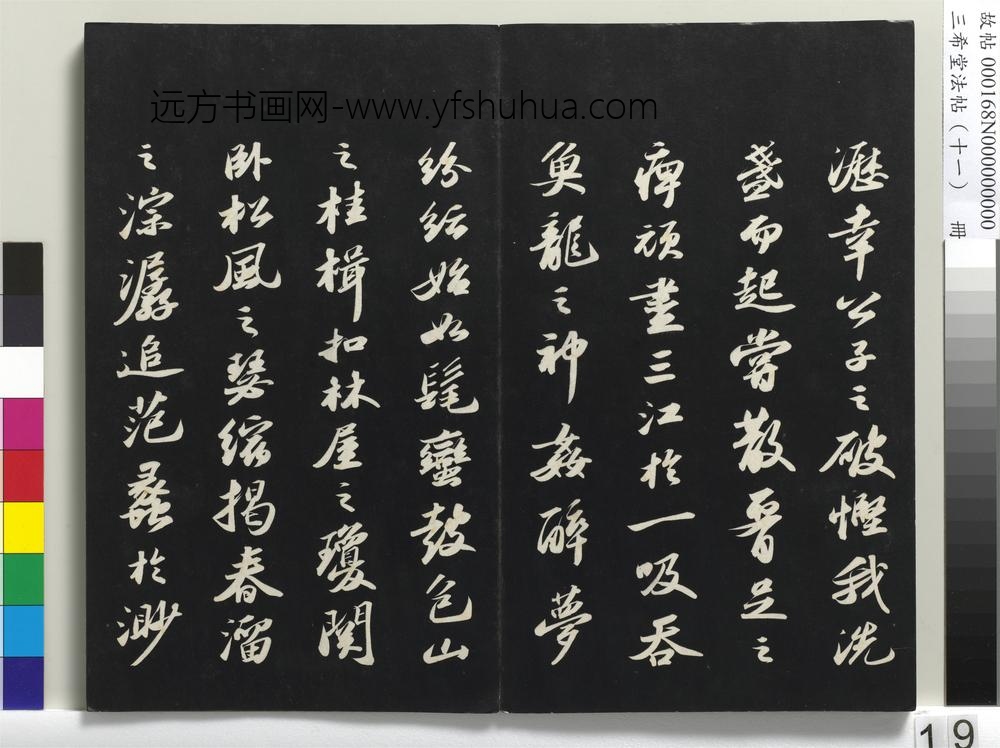 瀝幸公子之破慳我洗
盞而起嘗散腰足之
痺頑盡三江於一吸吞
魚龍之神姦醉夢
紛紜始如髦蠻鼓包山
之桂楫扣林屋之瓊關
卧松風之瑟縮揭春溜
之淙潺追范蠡於渺
远方书画网-www.yfshuhua.com
故帖 000168N000000000
三希堂法帖(十一) 册
19